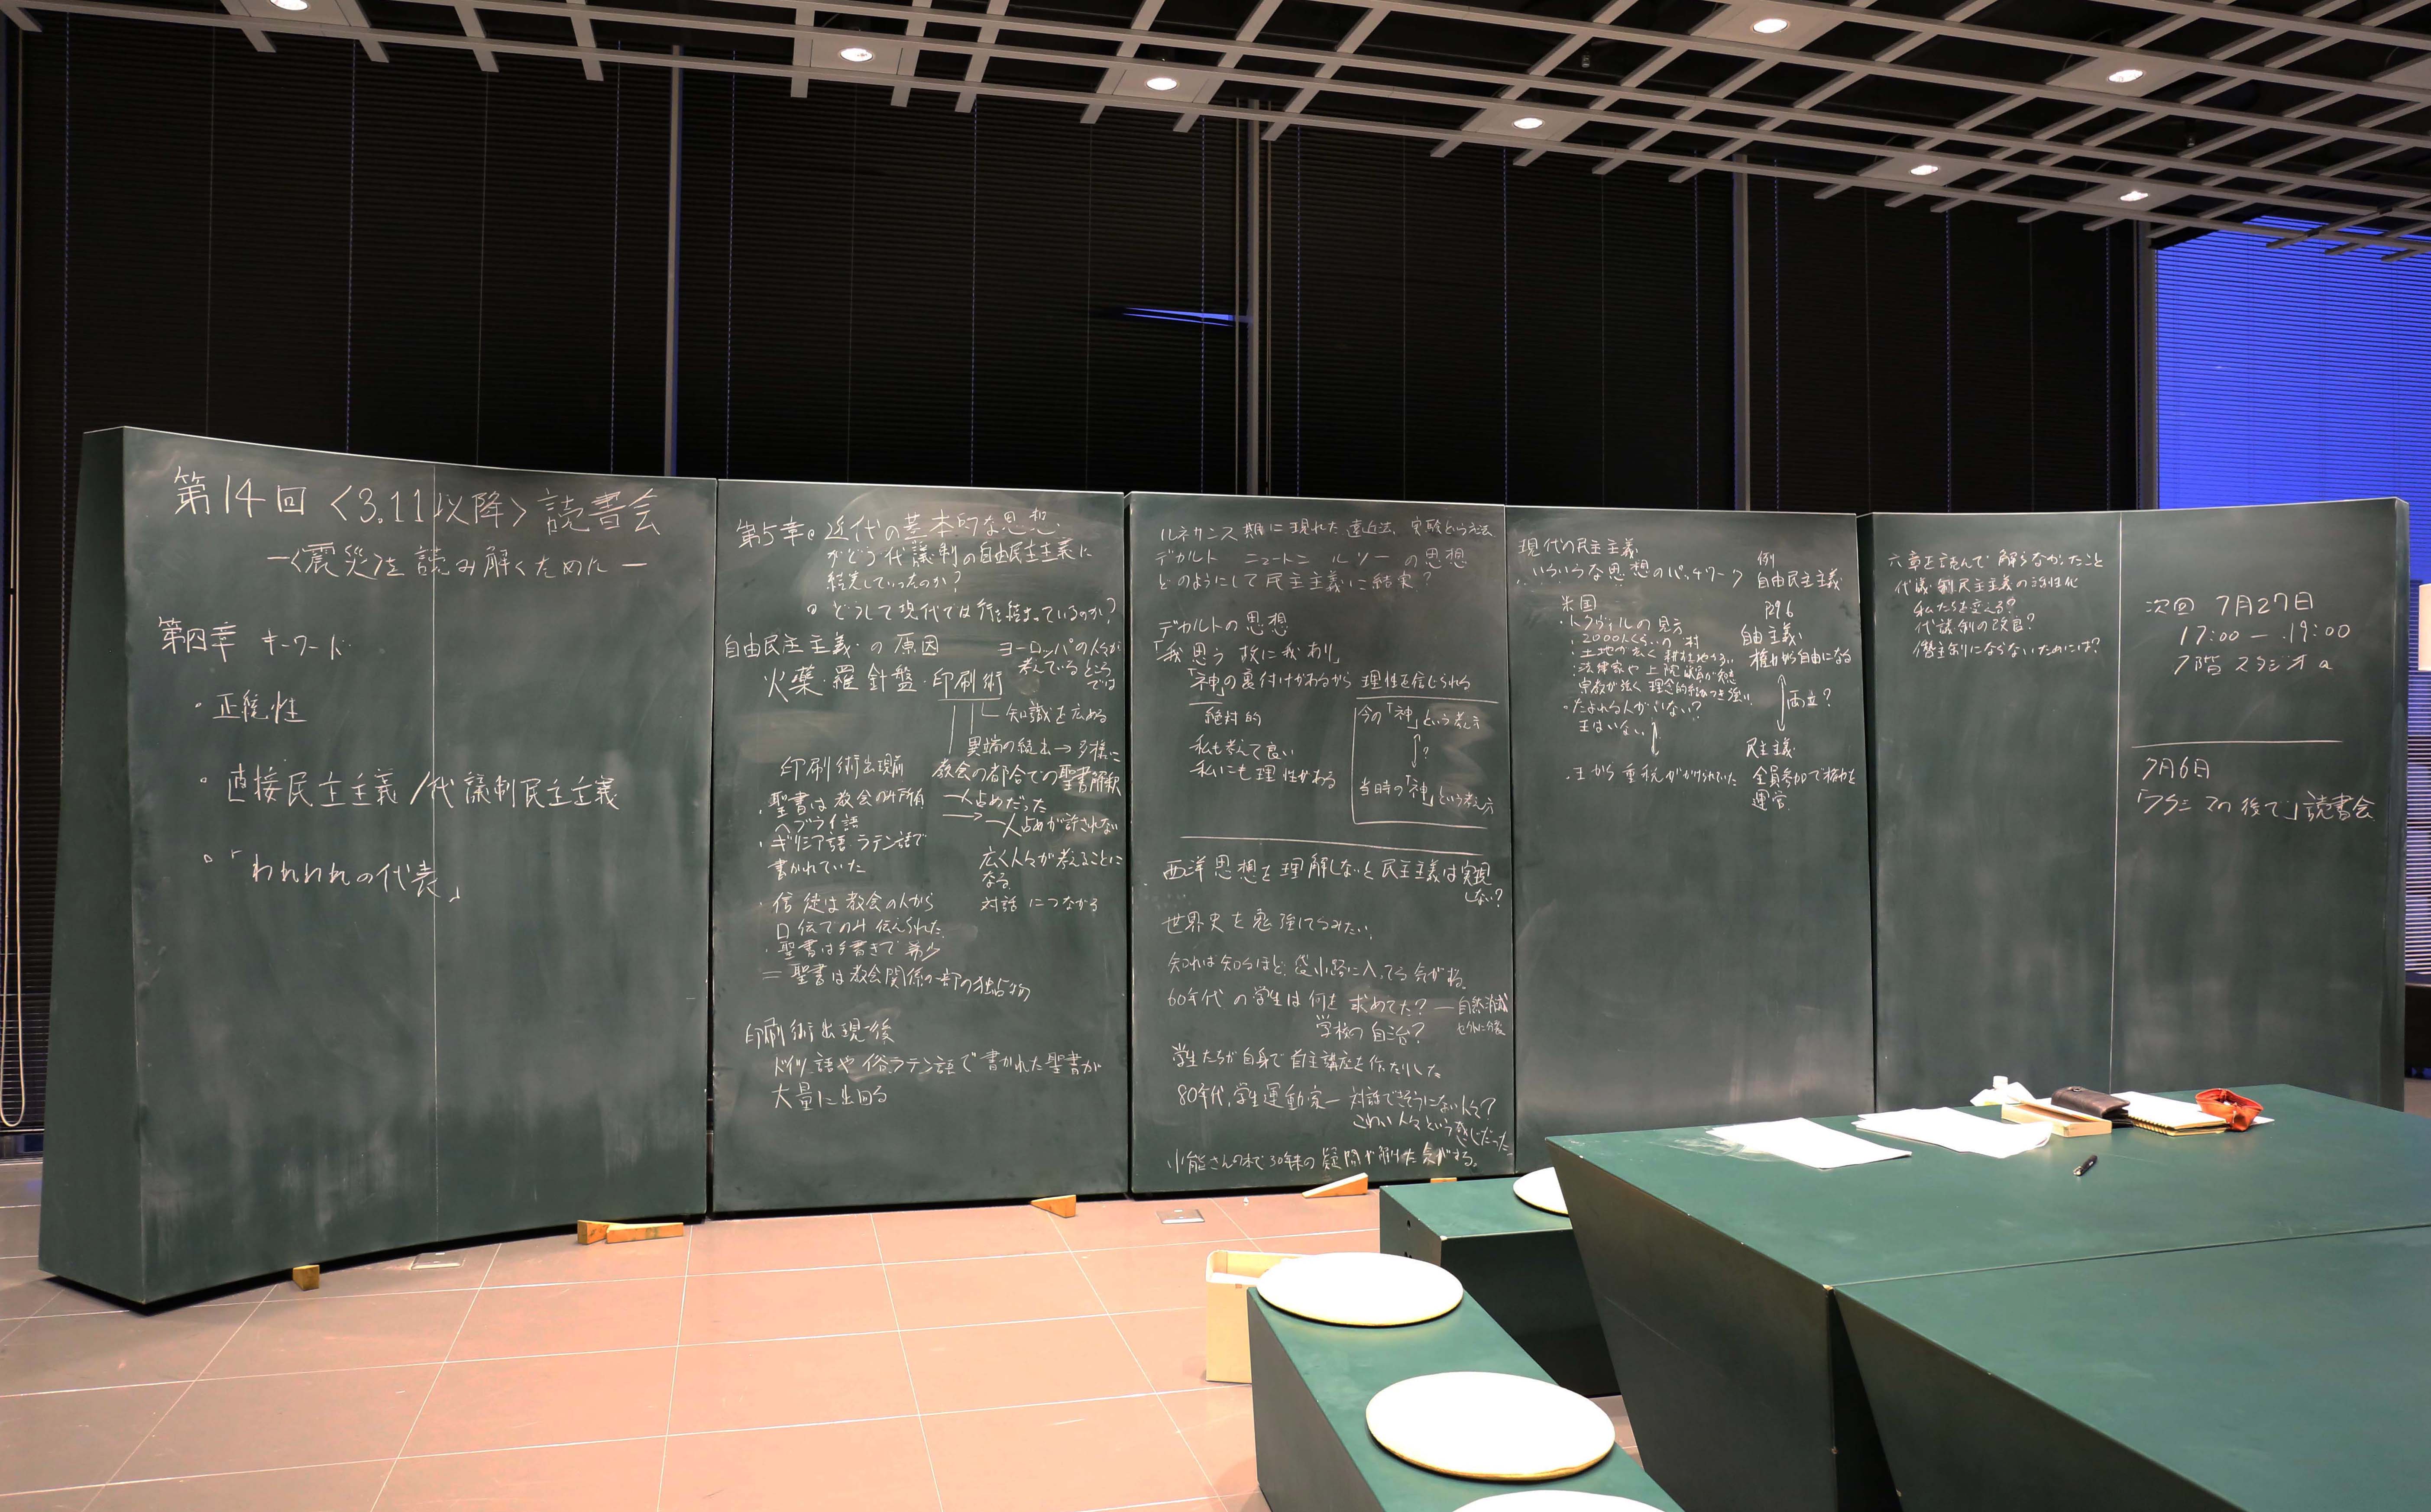 第14回〈3.11以降〉読書会
―〈震災〉を読み解くために―
第四章 キーワード
・正統性
・直接民主主義/代議制民主主義
・「われわれの代表」
第5章。近代の基本的な思想
がどう代議制の自由民主主義に
結実していったのか?
どうして現代では行き詰まっているのか?
自由民主主義の原因
ヨーロッパの人々が
考えているところ
では
火薬・羅針盤・印刷術
知識を広める
異端の続出→多様に
印刷術出現前
教会の都合での聖書解釈
・聖書は教会のみ所有
一人占めだった
ヘブライ語
→一人占めが許されない
・ギリシア語 ラテン語で
書かれていた
広く人々が考えることに
なる
・信徒は教会の人から
対話につながる
口伝てのみ伝えられた
・聖書は手書きで希少
=聖書は教会関係の一部の独占物
印刷術出現後
ドイツ語や俗ラテン語で書かれた聖書が
大量に出回る
ルネサンス期に現れた遠近法、実験という方法
デカルト ニュートン ルソーの思想
どのようにして民主主義に結実?
デカルトの思想
「我思う故に我あり」
「神」の裏付けがあるから理性を信じられる
絶対的
私も考えて良い
私にも理性がある
今の「神」という考え方
?
当時の「神」という考え方
西洋思想を理解しないと民主主義は実現
しない?
世界史を勉強してみたい。
知れば知るほど、袋小路に入ってる気がする。
60年代の学生は何を求めてた?―自然消滅
学校の自治?
学生たちが自身で自主講座を作ったりした。
80年代、学生運動家―対話できそうにない人々?
こわい人々という感じだった
小熊さんの本で30年来の疑問が解けた気がする。
現代の民主主義
いろいろな思想のパッチワーク
例
自由民主主義
P296
米国
・トクヴィルの見方
2000人くらいの村
土地が広く耕作地がある
法律家や上院議員が
宗教が強く理念的結びつき強い
・たよれる人がいない?
王はいない
・王から重税がかけられていた
自由主義
権力から自由になる
両立?
民主主義
全員参加で権力を
運営
六章を読んで解らなかったこと
代議制民主主義の活性化
私たちを変える?
代議制の改良?
僭主制にならないためには?
次回 7月27日
17:00―19:00
7階 スタジオa
7月6日
読書会